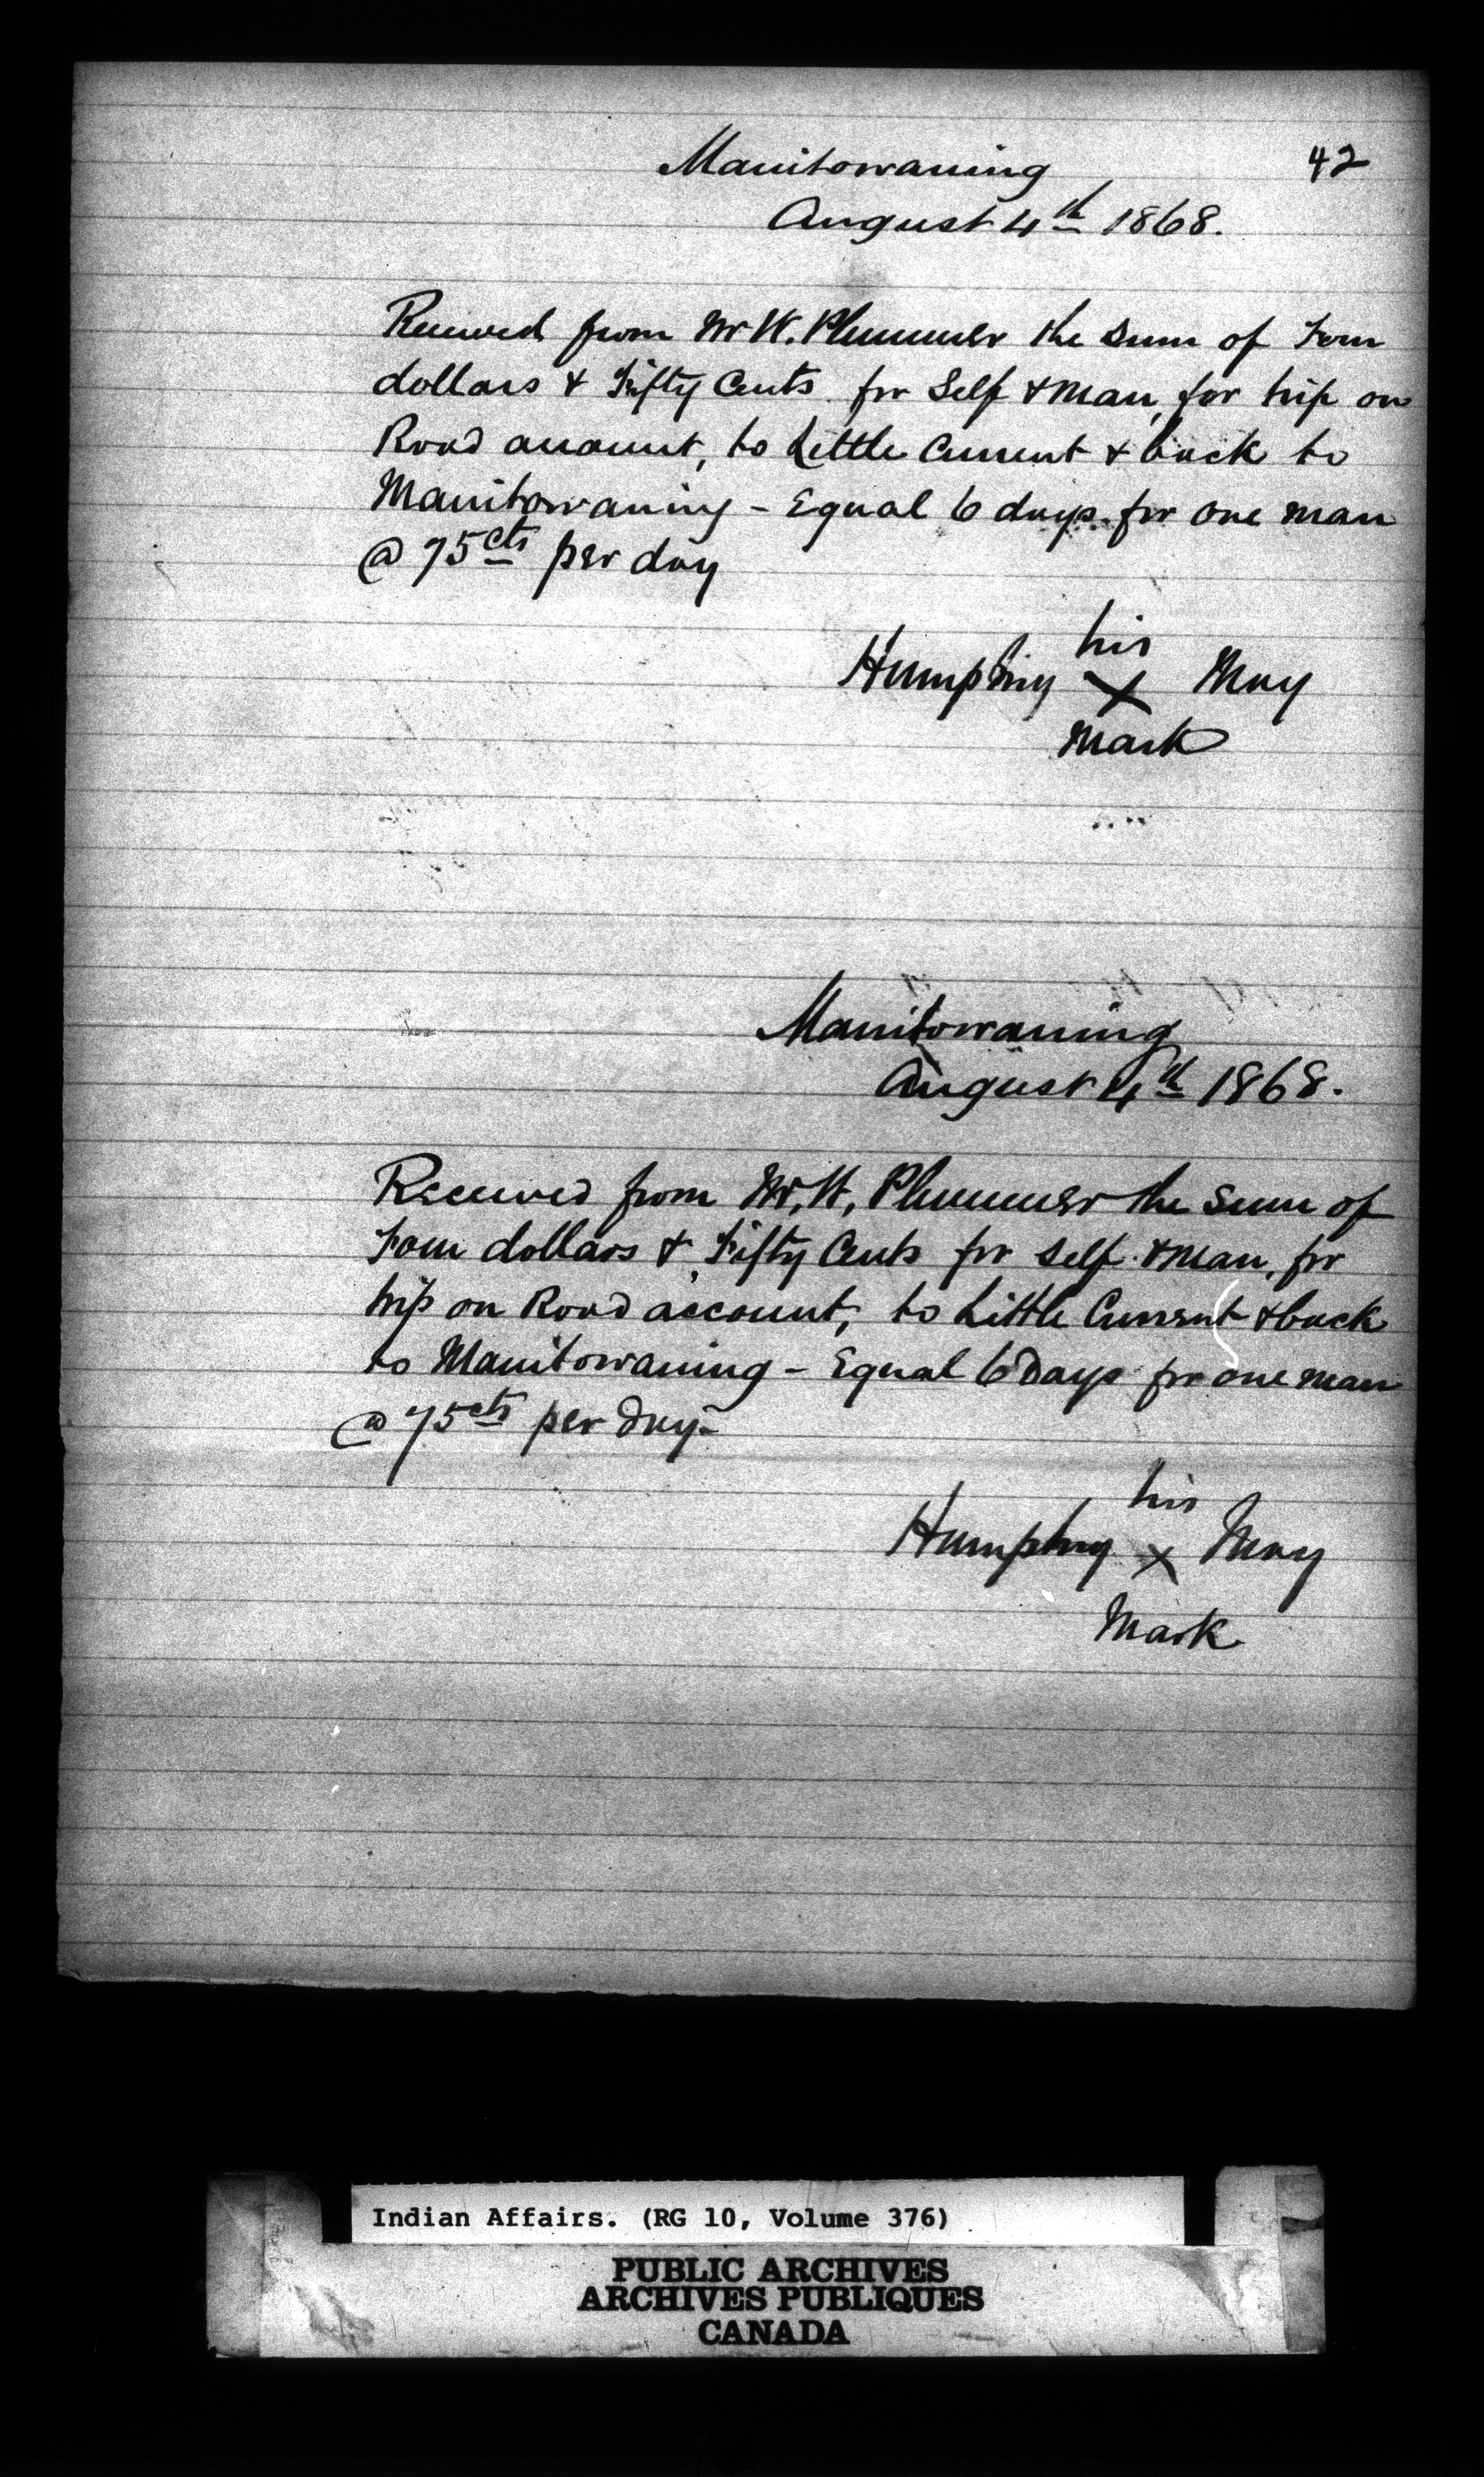 42
Manitowaning
August 4th 1868.
Received from Mr W. Plummer the sum of Four
dollars & Fifty Cents for Self & Man, for trip on
Road account, to Little Current & back to
Manitowaning - Equal 6 days for one man
@ 75cts per day
his
Humphrey X May
Mark
Manitowaning
August 4th 1868.
Received from Mr. W. Plummer the sum of
Four dollars & Fifty Cents for Self & Man, for
trip on Road account, to Little Current & back
to Manitowaning - Equal 6 Days for one man
@ 75cts per Day-
his
Humphrey X May
Mark
Indian Affairs. (RG 10, Volume 376)
PUBLIC ARCHIVES
ARCHIVES PUBLIQUES
CANADA